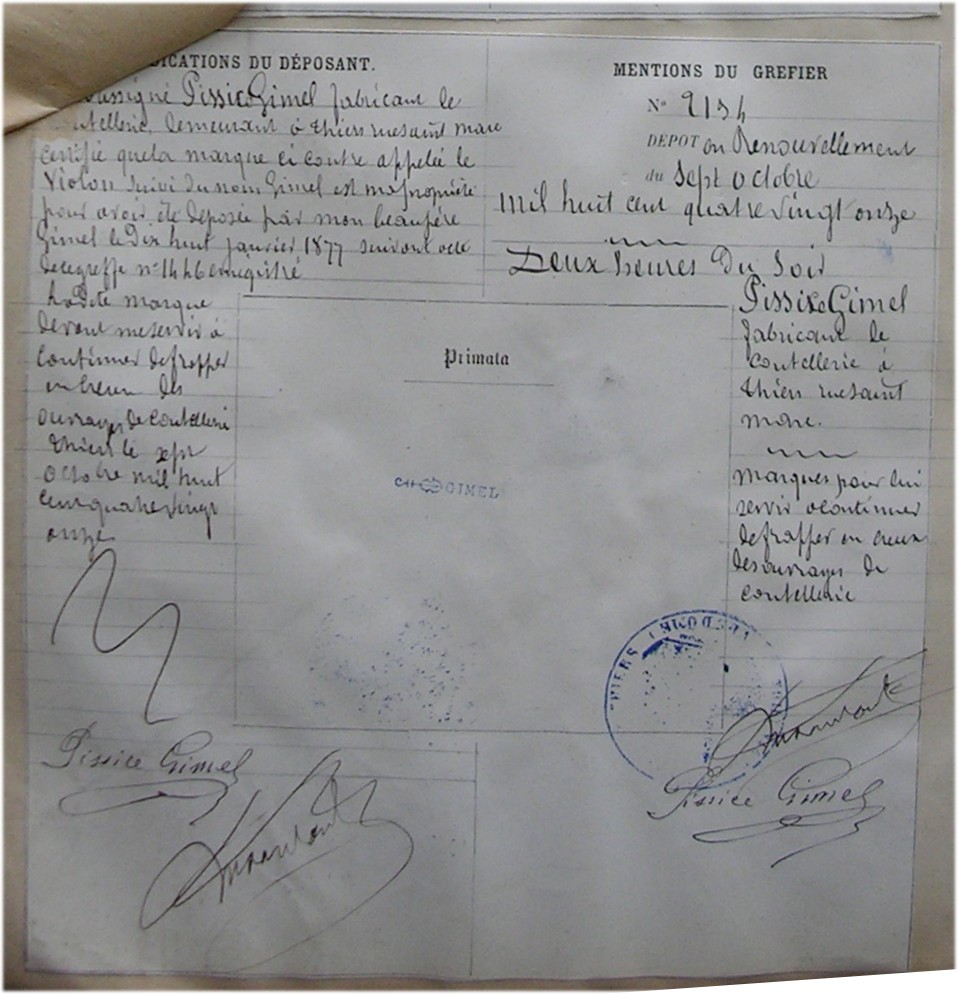 DICATIONS DU DÉPOSANT.
oussigné Pissice Gimel fabricant de
utellerie, demeurant à thiers rue saint marc
certifie que la marque ci contre appelée le
Violon suivi du nom Gimel est ma propriété
pour avoir été déposée par mon beaupère
Gimel le Dix huit janvier 1877 suivant acte
de greffe n° 1446 enregistré
Ladite marque
devant me servir à
continuer de frapper
en creux des
ouvrages de coutellerie
thiers le sept
octobre mil huit
cent quatre vingt
onze
Pissice Gimel
MENTIONS DU GREFIER
N° 2134
DÉPOT en Renouvellement
du Sept octobre
mil huit cent quatre vingt onze
Deux heures Du Soir
Pissice Gimel
fabricant de
coutellerie à
thiers rue saint
marc.
marques pour lui
servir a continuer
de frapper en creux
des ouvrages de
coutellerie
Pissice Gimel
Primata
GIMEL